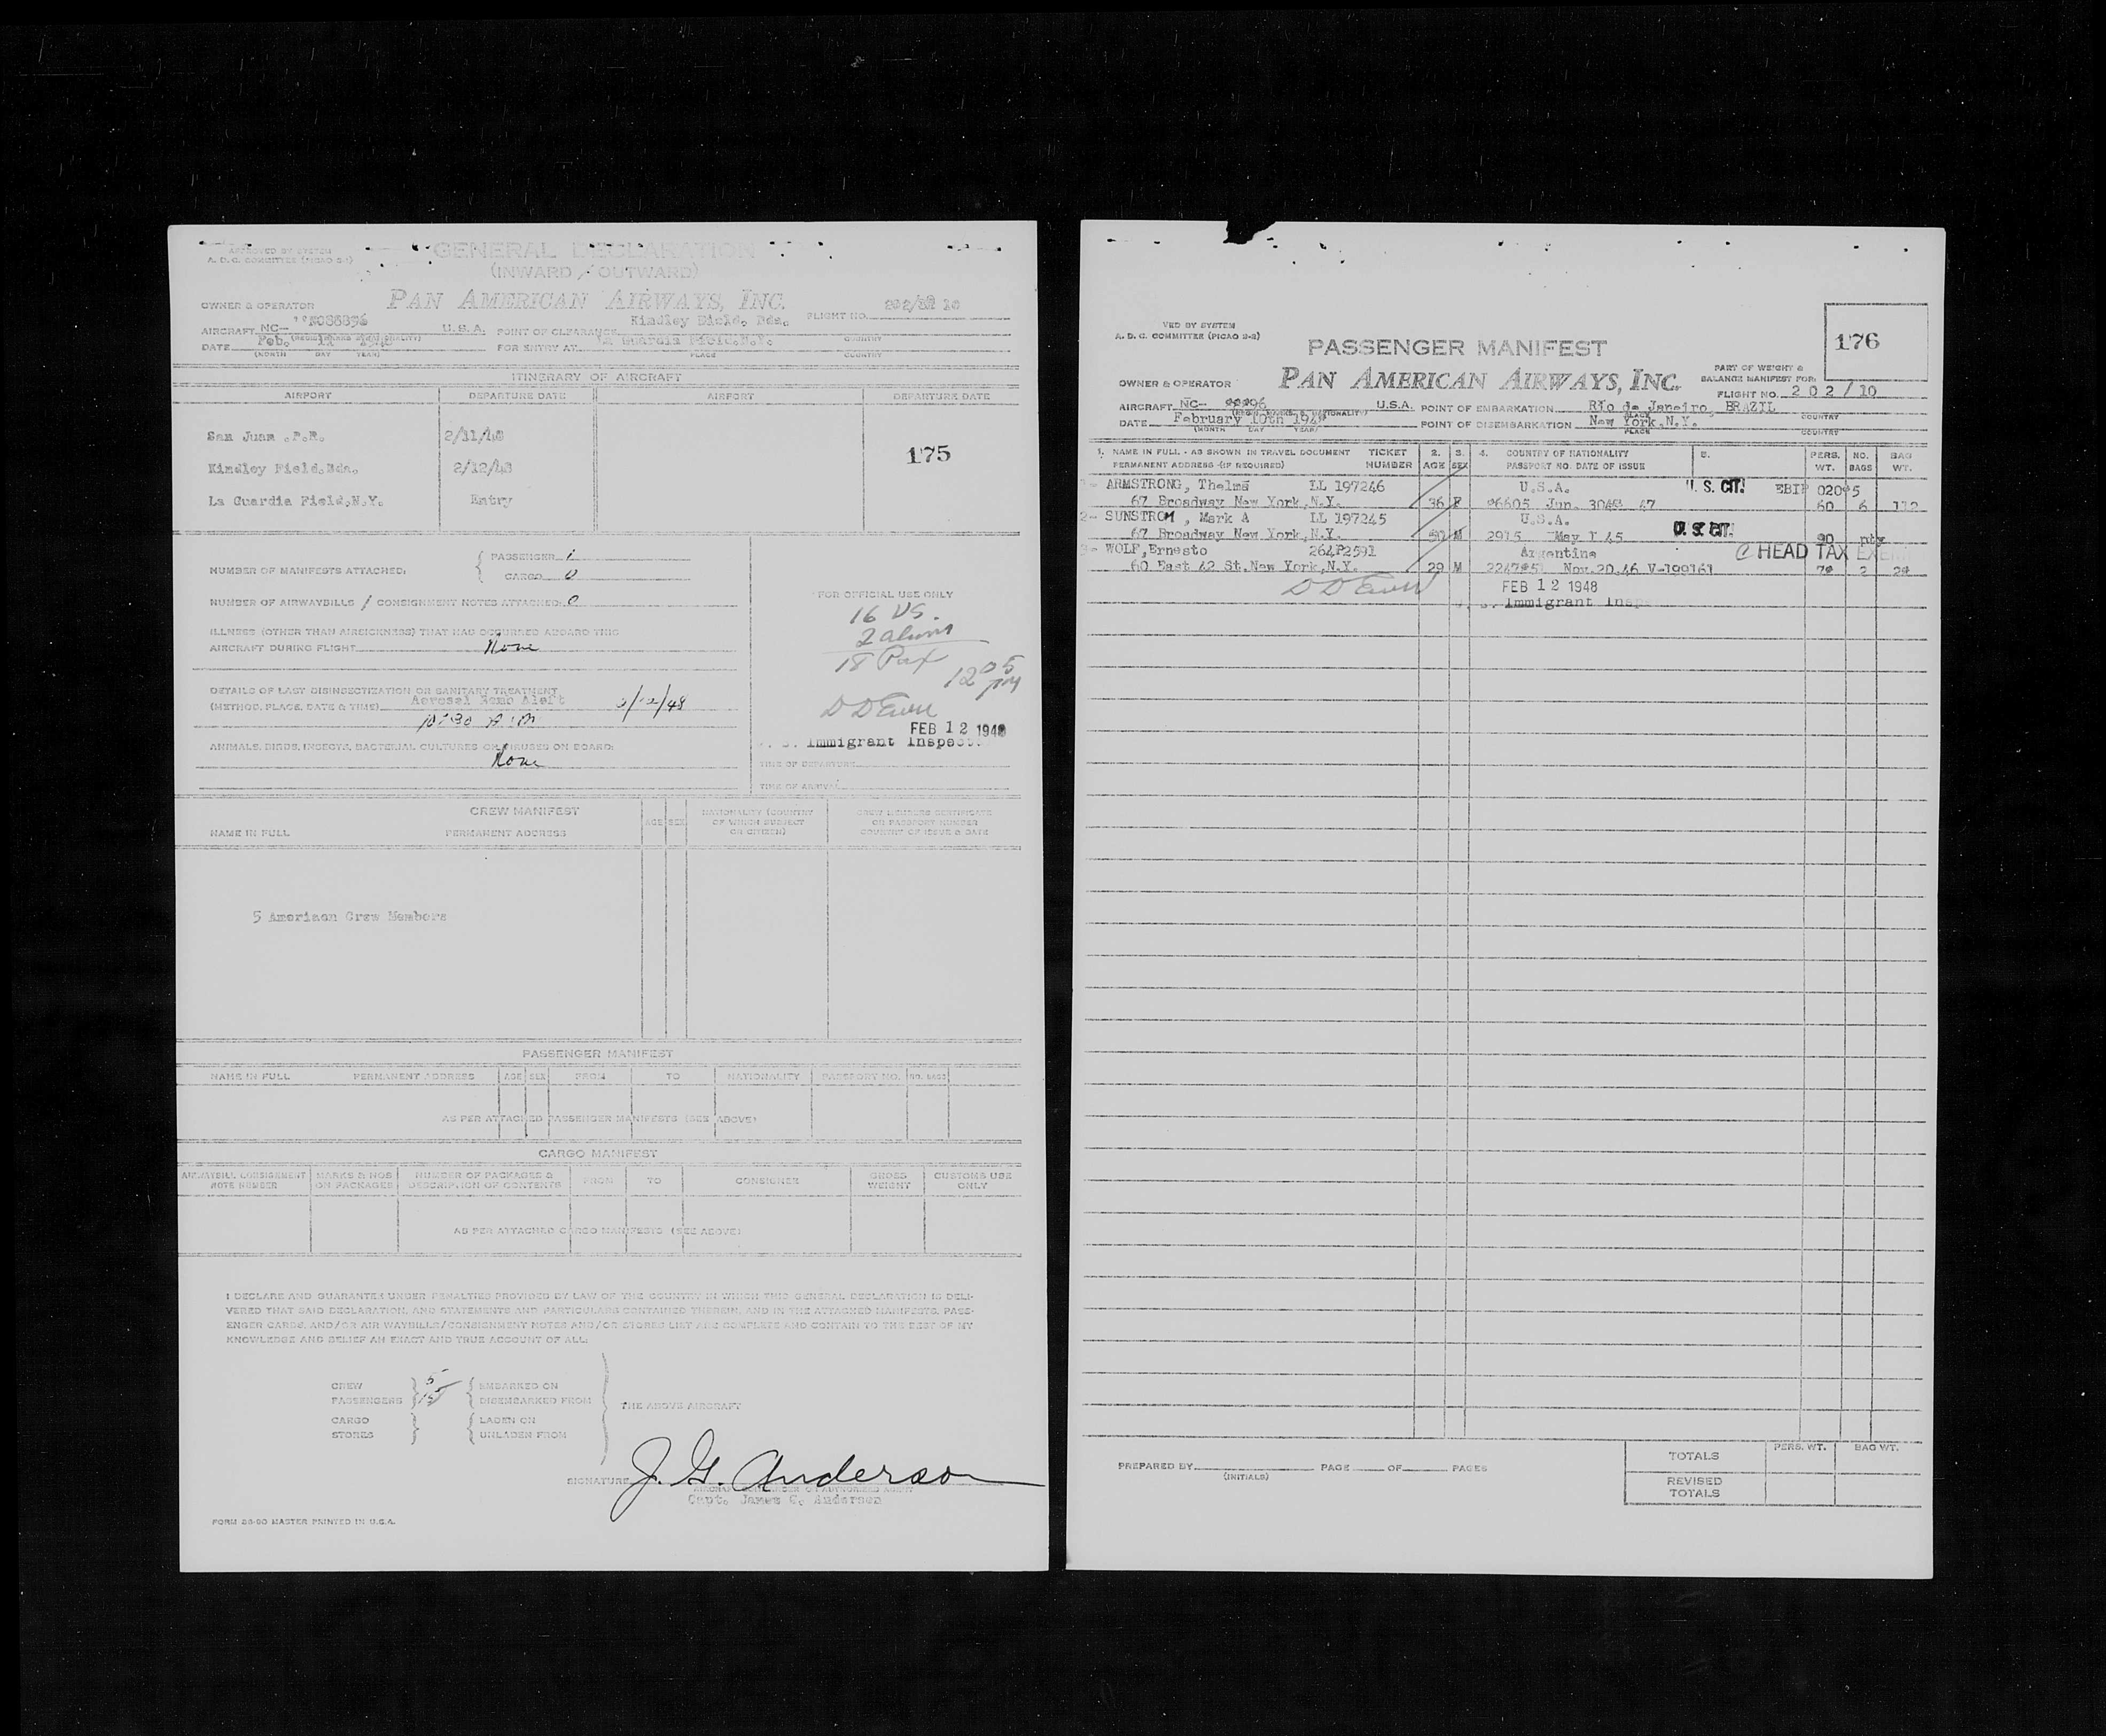 APPROVED BY SYSTEM
A. D. C. COMMITTEE (PICAO 2-1)
GENERAL DECLARATION
(INWARD / OUTWARD)
OWNER & OPERATOR PAN AMERICAN AIRWAYS, INC. FLIGHT NO. 10
AIRCRAFT NC- U.S.A. POINT OF CLEARANCE Kindley Field, Bda.
COUNTRY
DATE Feb. FOR ENTRY AT La Guardia Field,N.Y.
(MONTH DAY YEAR) PLACE COUNTRY
ITINERARY OF AIRCRAFT
AIRPORT DEPARTURE DATE AIRPORT DEPARTURE DATE
San Juan .P.R. 2/11/48
175
Kindley Field,Bda. 2/12/48
La Guardia Field,N.Y. Entry
NUMBER OF MANIFESTS ATTACHED: { PASSENGER 1
CARGO 0
NUMBER OF AIRWAYBILLS / CONSIGNMENT NOTES ATTACHED: 0
ILLNESS (OTHER THAN AIRSICKNESS) THAT HAS OCCURRED ABOARD THIS
AIRCRAFT DURING FLIGHT None
DETAILS OF LAST DISINSECTIZATION OR SANITARY TREATMENT
(METHOD, PLACE, DATE & TIME) Aerosol Bomb Aloft 2/12/48
10:30 A.M
ANIMALS, BIRDS, INSECTS, BACTERIAL CULTURES OR VIRUSES ON BOARD:
None
FOR OFFICIAL USE ONLY
16 US.
2 aliens
18 Pax
12 05 PM
FEB 12 1948
Immigrant Inspect
TIME OF DEPARTURE
TIME OF ARRIVAL
CREW MANIFEST
NAME IN FULL PERMANENT ADDRESS AGE SEX NATIONALITY (COUNTRY OF WHICH SUBJECT OR CITIZEN) CREW MEMBERS CERTIFICATE OR PASSPORT NUMBER COUNTRY OF ISSUE & DATE
5 Ameriacn Crew Members
PASSENGER MANIFEST
NAME IN FULL PERMANENT ADDRESS AGE SEX FROM TO NATIONALITY PASSPORT NO. NO. BAGS
AS PER ATTACHED PASSENGER MANIFESTS (SEE ABOVE)
CARGO MANIFEST
AIRWAYBILL CONSIGNMENT NOTE NUMBER MARKS & NOS ON PACKAGES NUMBER OF PACKAGES & DESCRIPTION OF CONTENTS FROM TO CONSIGNEE GROSS WEIGHT CUSTOMS USE ONLY
AS PER ATTACHED CARGO MANIFESTS (SEE ABOVE)
I DECLARE AND GUARANTEE UNDER PENALTIES PROVIDED BY LAW OF THE COUNTRY IN WHICH THIS GENERAL DECLARATION IS DELI-
VERED THAT SAID DECLARATION, AND STATEMENTS AND PARTICULARS CONTAINED THEREIN, AND IN THE ATTACHED MANIFESTS, PASS-
ENGER CARDS, AND/OR AIR WAYBILLS/CONSIGNMENT NOTES AND/OR STORES LIST ARE COMPLETE AND CONTAIN TO THE BEST OF MY
KNOWLEDGE AND BELIEF AN EXACT AND TRUE ACCOUNT OF ALL:
CREW 5 EMBARKED ON
PASSENGERS DISEMBARKED FROM
THE ABOVE AIRCRAFT
CARGO LADEN ON
STORES UNLADEN FROM
SIGNATURE J. G. Anderson
AIRCRAFT COMMANDER OR AUTHORIZED AGENT
Capt. James G. Anderson
FORM 28-90 MASTER PRINTED IN U.S.A.
VED BY SYSTEM
A. D. C. COMMITTEE (PICAO 2-2)
176
PASSENGER MANIFEST
OWNER & OPERATOR PAN AMERICAN AIRWAYS, INC.
PART OF WEIGHT &
BALANCE MANIFEST FOR:
FLIGHT NO. 202/10
AIRCRAFT NC- U.S.A. POINT OF EMBARKATION Rio de Janeiro, BRAZIL
(REGIS. MARKS & NATIONALITY) PLACE COUNTRY
DATE February 10th 194 POINT OF DISEMBARKATION New York,N.Y.
(MONTH DAY YEAR) PLACE COUNTRY
1. NAME IN FULL - AS SHOWN IN TRAVEL DOCUMENT TICKET 2. 3. 4. COUNTRY OF NATIONALITY 5. PERS. NO. BAG
PERMANENT ADDRESS (IF REQUIRED) NUMBER AGE SEX PASSPORT NO. DATE OF ISSUE WT. BAGS WT.
1- ARMSTRONG, Thelma LL 197246 U.S.A. U. S. CIT.
67 Broadway New York,N.Y. 36 F 47 60 6 112
2- SUNSTROM , Mark A LL 197245 U.S.A.
67 Broadway New York,N.Y. 50 M 2915 May 1 45 U. S. CIT. 90
3- WOLF,Ernesto 264P2591 Argentine HEAD TAX
60 East 42 St.New York,N.Y. 29 M Nov.20,46 V-199161 2
FEB 12 1948
Immigrant Insp
PREPARED BY PAGE OF PAGES
(INITIALS)
PERS. WT. BAG WT.
TOTALS
REVISED
TOTALS